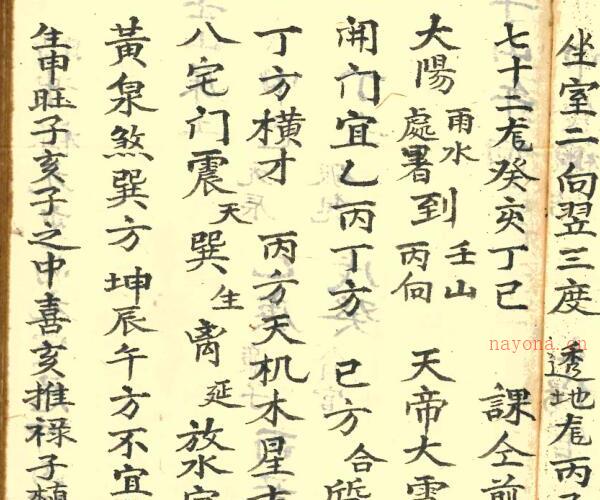 坐室二向翌三度 透地尨丙子
七十二尨癸亥丁巳 課仝前
太陽 雨水 處署 到 壬山 丙向 天帝大
開门宜乙丙丁方 巳方合
丁方横才 丙方天机木星吉
八宅门震天 巽生 离延 放水宜
黃泉煞巽方 坤辰午方不宜
生申旺子亥子之中喜亥推禄子
nayona.cn